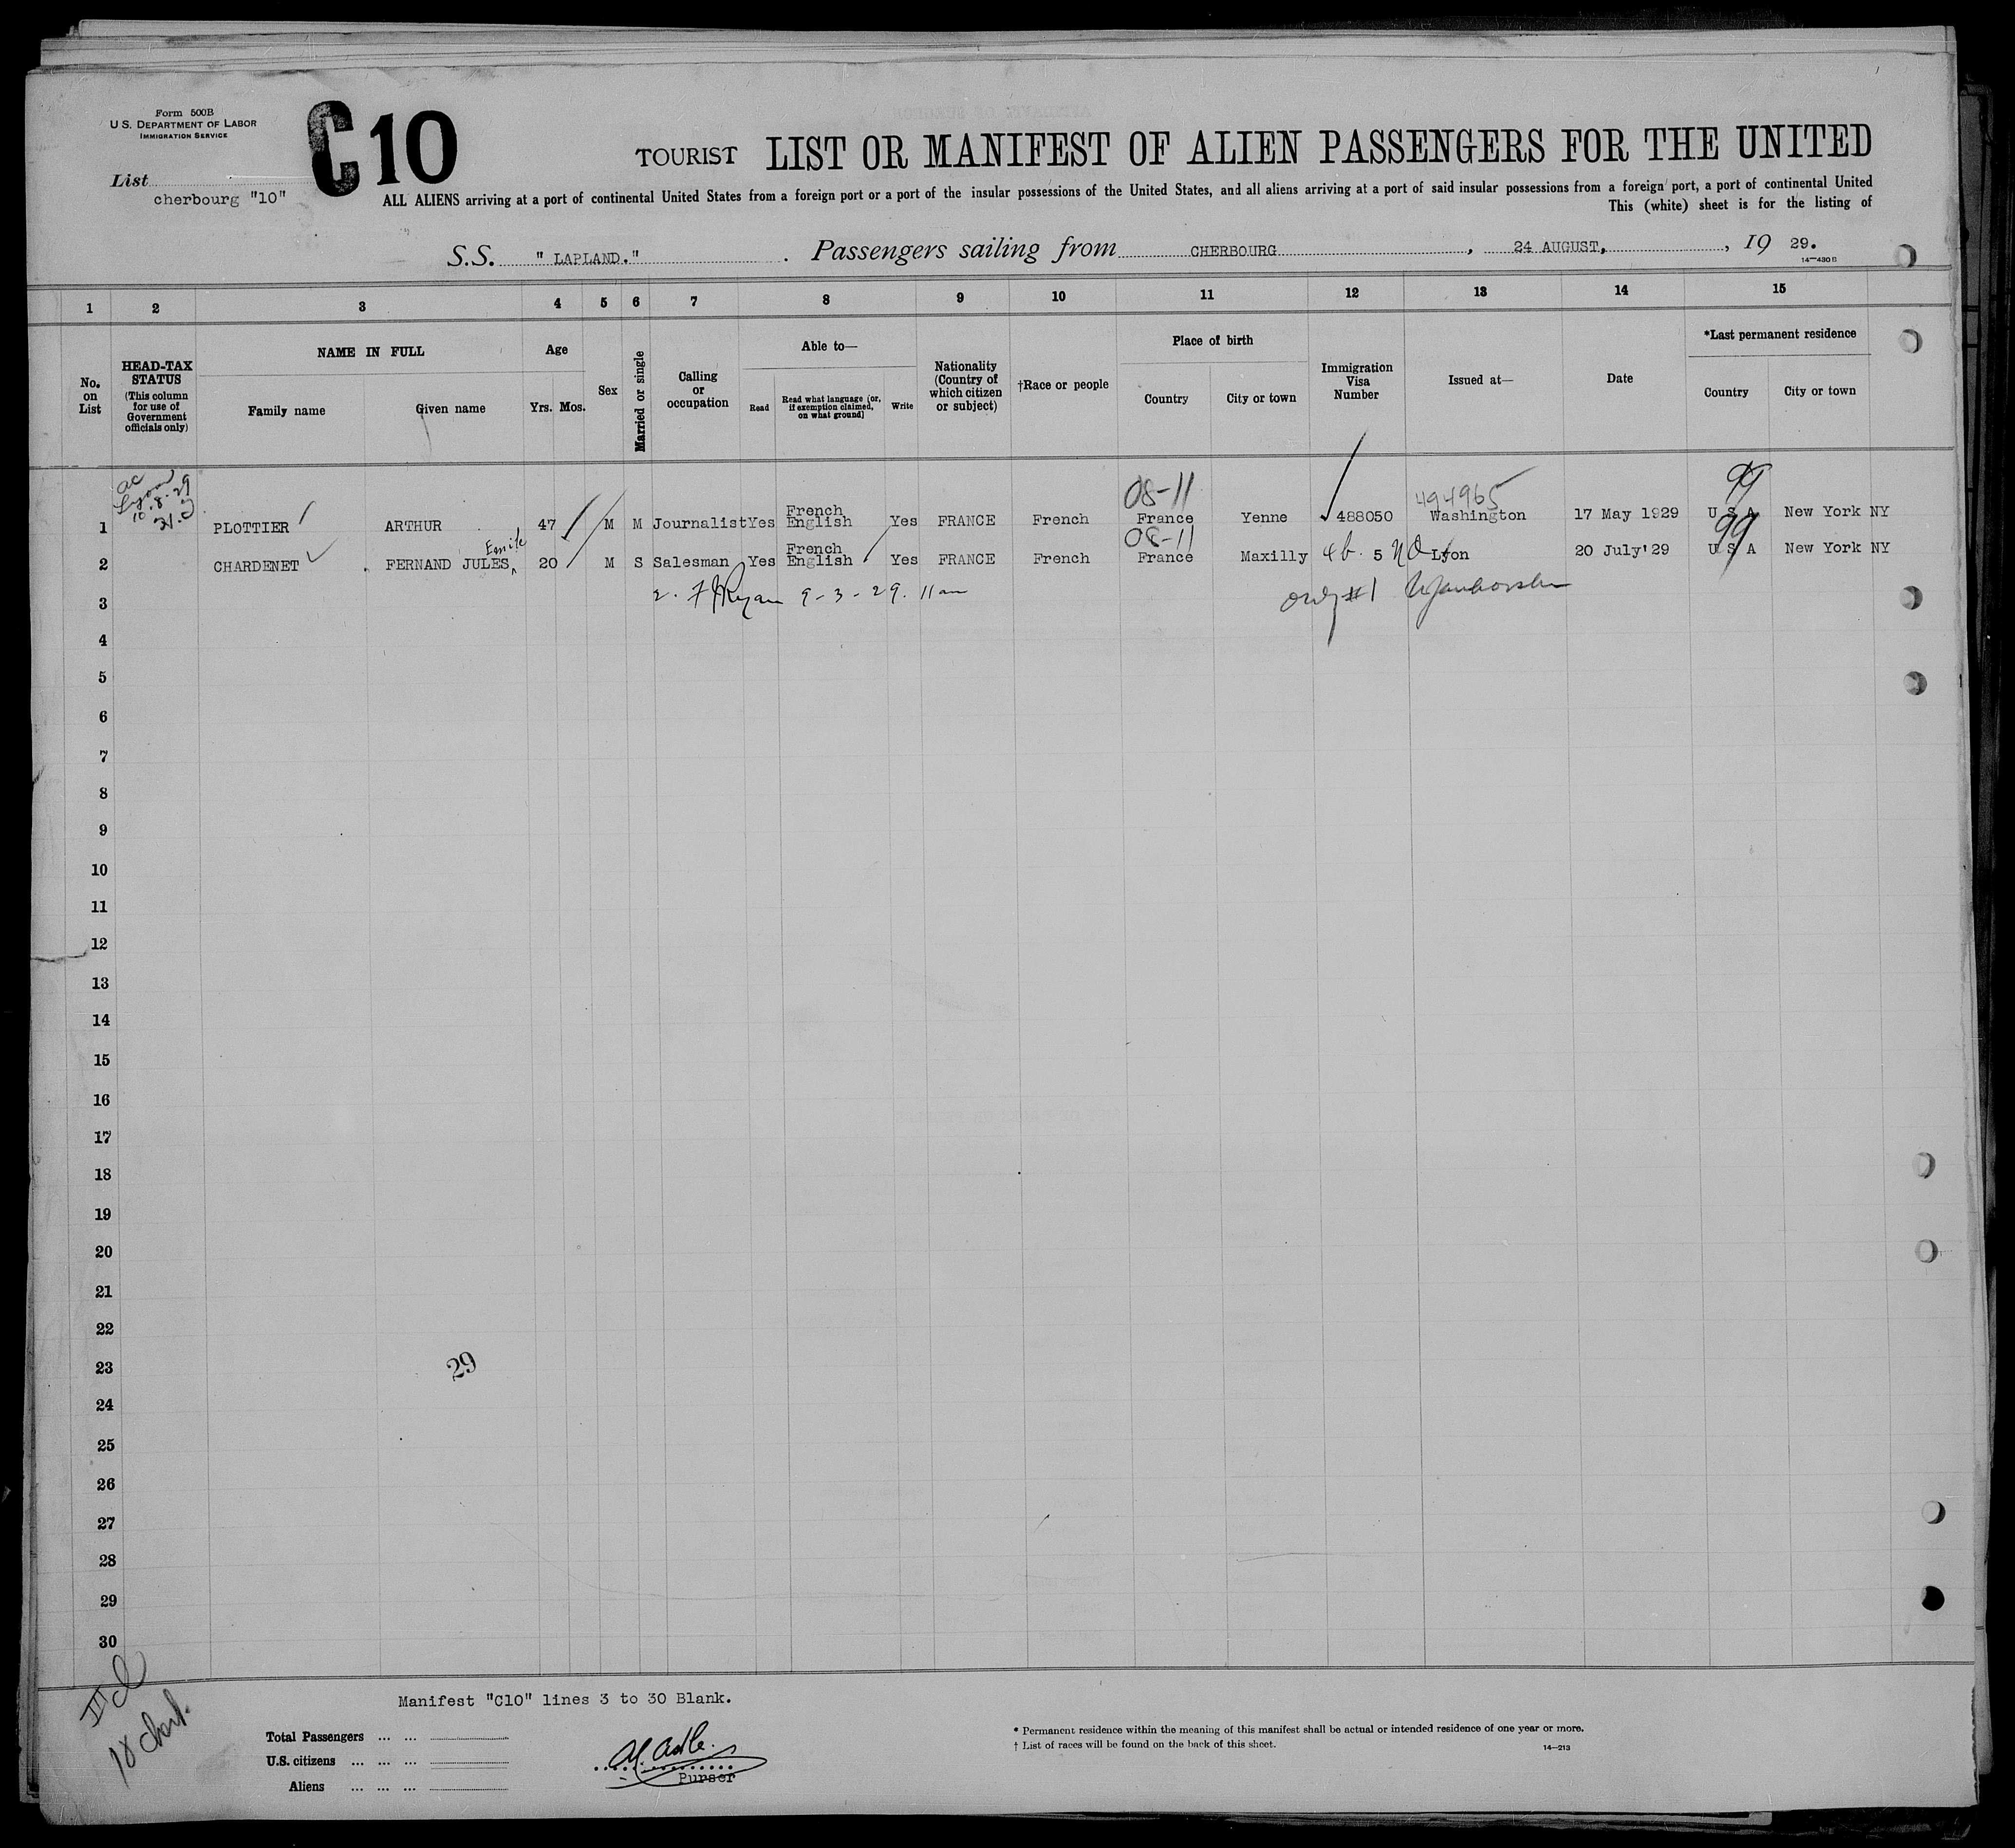 Form 500B
U.S. DEPARTMENT OF LABOR
IMMIGRATION SERVICE
C10
List
cherbourg "10"
TOURIST LIST OR MANIFEST OF ALIEN PASSENGERS FOR THE UNITED
ALL ALIENS arriving at a port of continental United States from a foreign port or a port of the insular possessions of the United States, and all aliens arriving at a port of said insular possessions from a foreign port, a port of continental United
This (white) sheet is for the listing of
S.S. "LAPLAND." . Passengers sailing from CHERBOURG , 24 AUGUST, , 19 29.
14-430 B
1 2 3 4 5 6 7 8 9 10 11 12 13 14 15
No. on List
HEAD-TAX STATUS (This column for use of Government officials only)
NAME IN FULL
Family name
Given name
Age
Yrs. Mos.
Sex
Married or single
Calling or occupation
Able to—
Read
Read what language (or, if exemption claimed, on what ground)
Write
Nationality (Country of which citizen or subject)
†Race or people
Place of birth
Country
City or town
Immigration Visa Number
Issued at—
Date
*Last permanent residence
Country
City or town
08-11 494965 99
1 PLOTTIER ARTHUR 47 M M Journalist Yes French English Yes FRANCE French France Yenne 488050 Washington 17 May 1929 U S A New York NY
08-11 99
2 CHARDENET FERNAND JULES Emile 20 M S Salesman Yes French English Yes FRANCE French France Maxilly 4b. 5 Lyon 20 July'29 U S A New York NY
2. Ryan 9-3-29. 11am only #1
3
4
5
6
7
8
9
10
11
12
13
14
15
16
17
18
19
20
21
22
23
29
24
25
26
27
28
29
30
Manifest "C10" lines 3 to 30 Blank.
Total Passengers ... ...
U.S. citizens ... ... ...
Aliens ... ... ...
Purser
* Permanent residence within the meaning of this manifest shall be actual or intended residence of one year or more.
† List of races will be found on the back of this sheet.
14—213